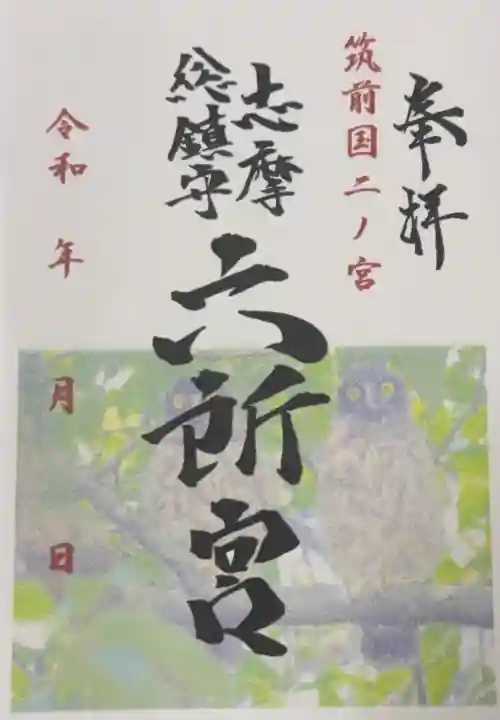 奉拝
筑前国二ノ宮
志摩
総鎮守
六所宮
令和 年 月 日